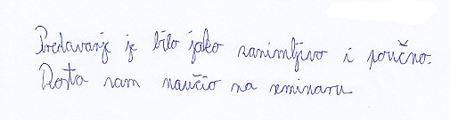 Predavanje je bilo jako zanimljivo i poučno.
Dosta sam naučio na seminaru